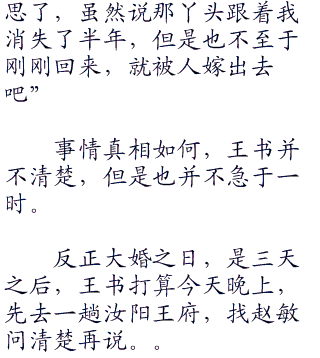 思了，虽然说那丫头跟着我
消失了半年，但是也不至于
刚刚回来，就被人嫁出去
吧”
事情真相如何，王书并
不清楚，但是也并不急于一
时。
反正大婚之日，是三天
之后，王书打算今天晚上，
先去一趟汝阳王府，找赵敏
问清楚再说。。